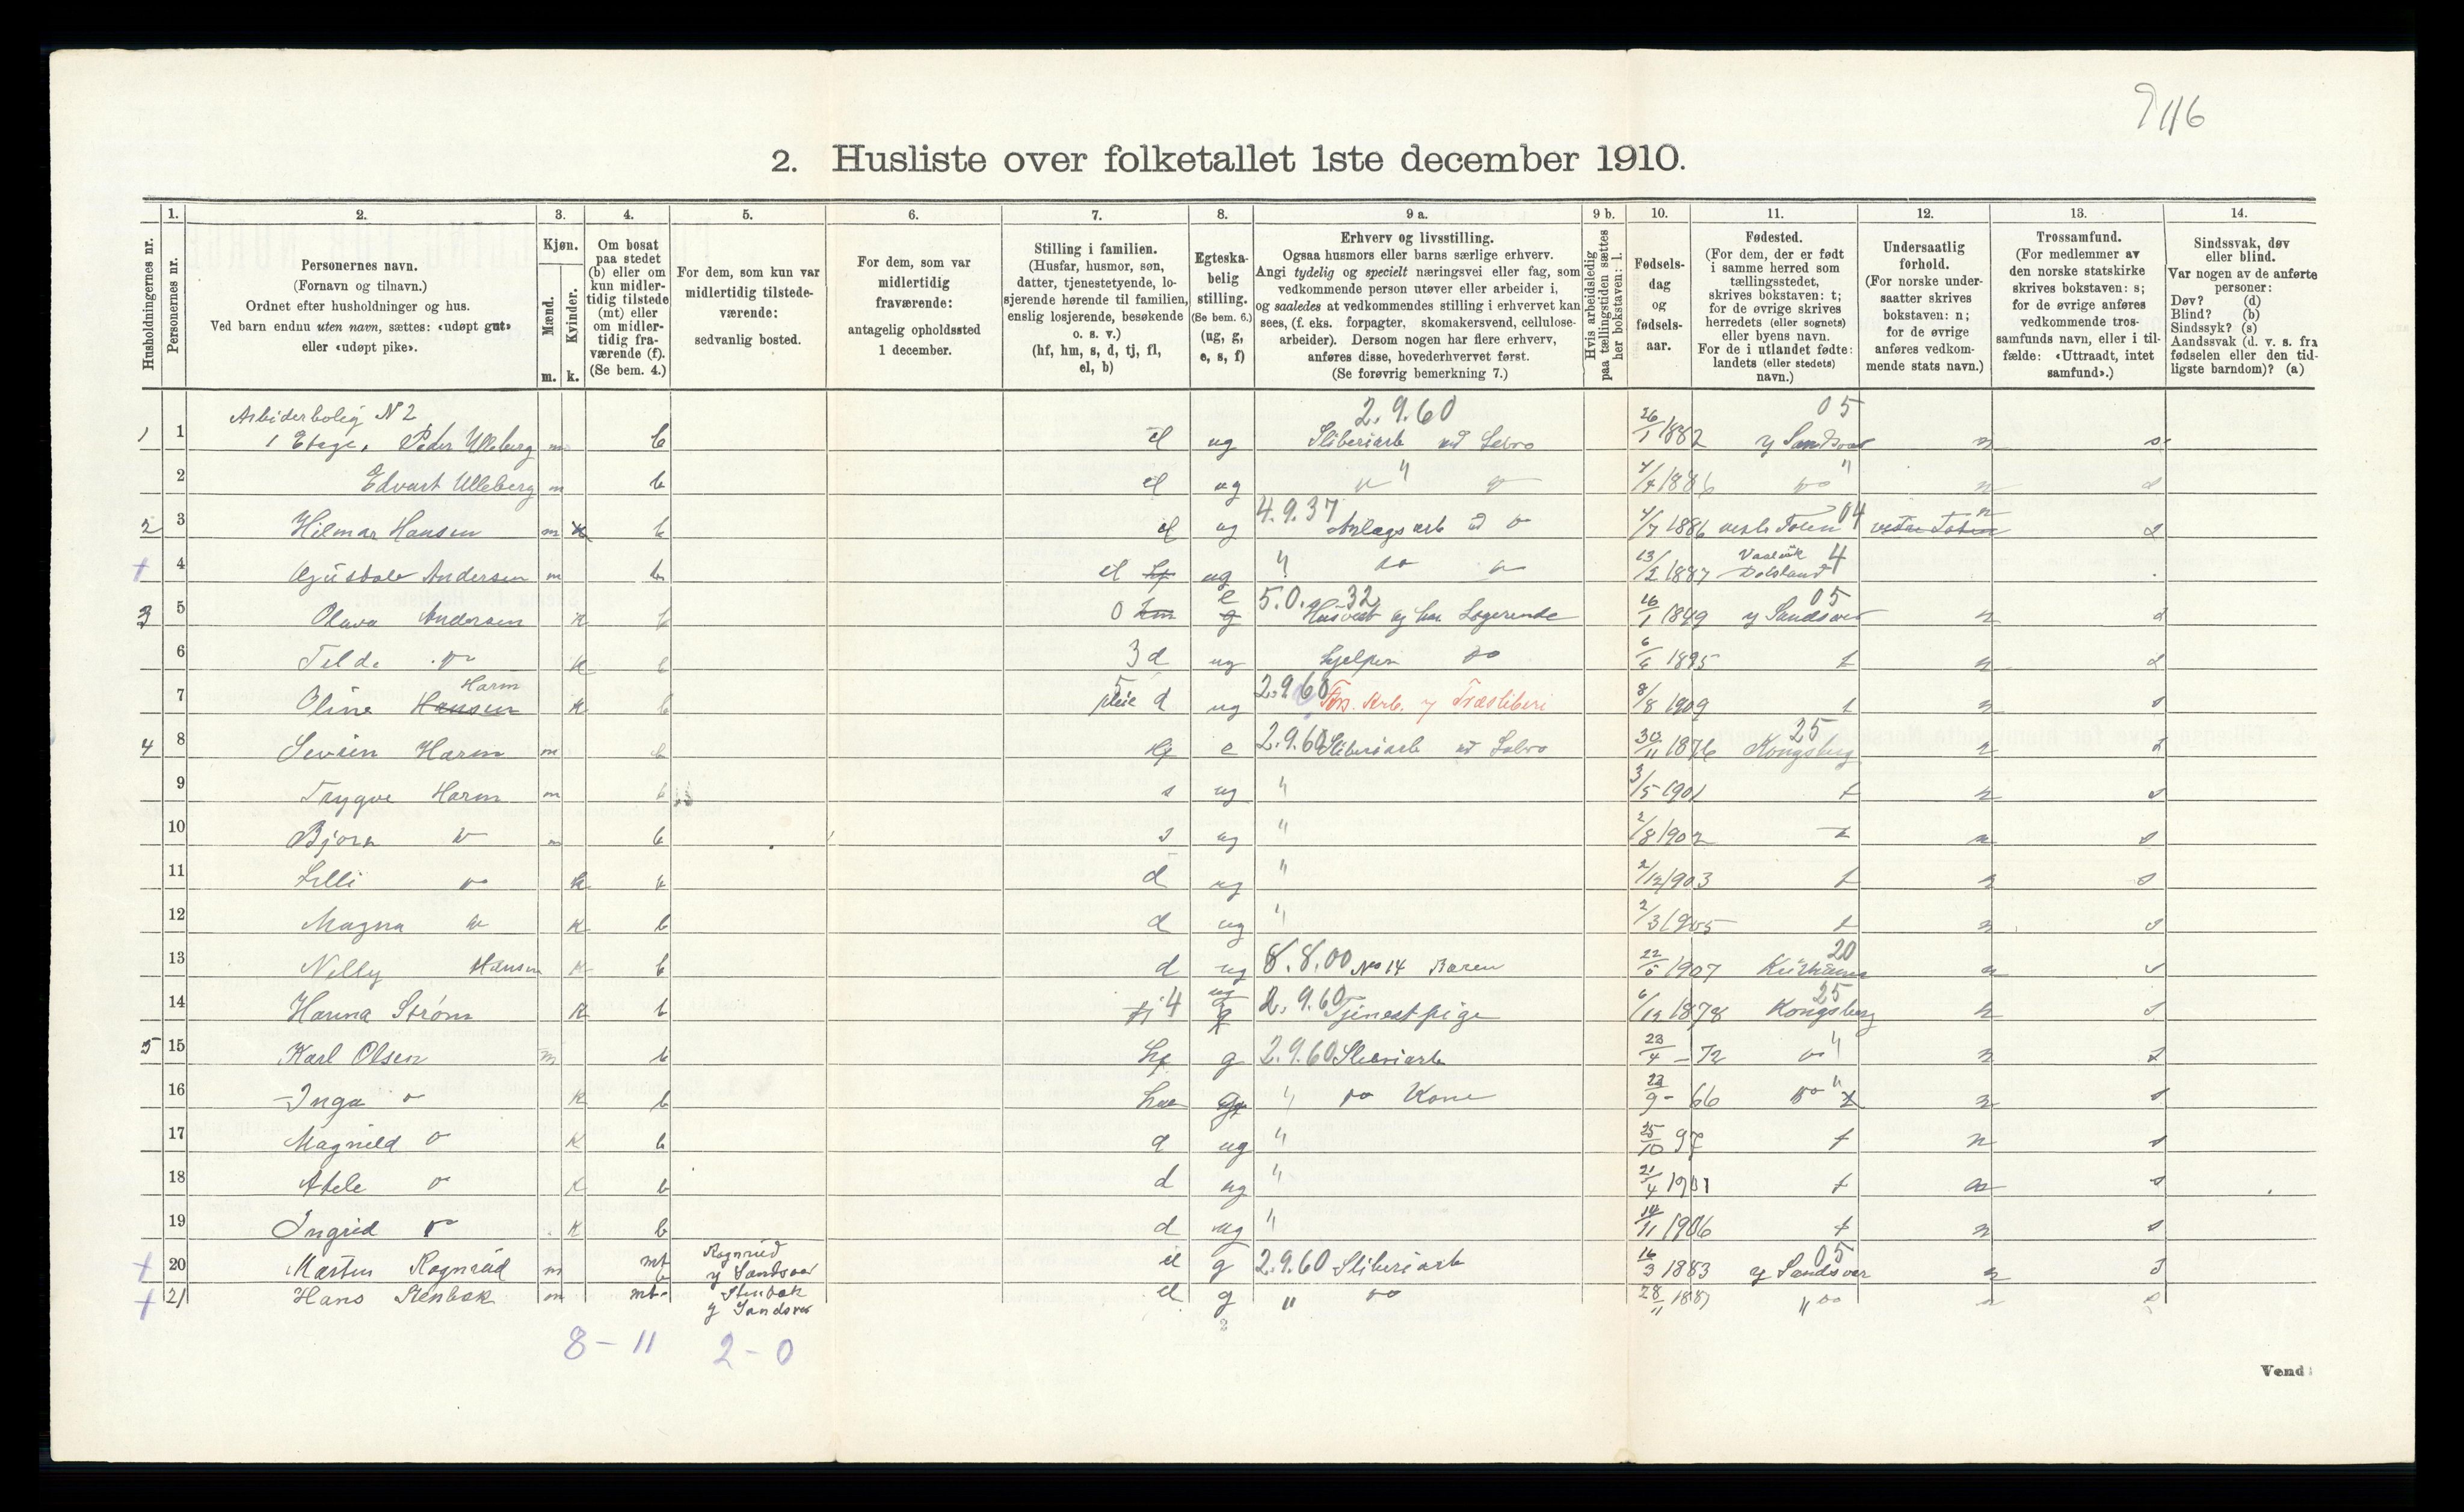 9116
2. Husliste over folketallet 1ste december 1910.
1. 2. 3. 4. 5. 6. 7. 8. 9 a. 9 b. 10. 11. 12. 13. 14.
Husholdningernes nr.
Personernes nr.
Personernes navn.
(Fornavn og tilnavn.)
Ordnet efter husholdninger og hus.
Ved barn endnu uten navn, sættes: «udøpt gut»
eller «udøpt pike».
Kjøn.
Mænd. m.
Kvinder. k.
Om bosat
paa stedet
(b) eller om
kun midler-
tidig tilstede
(mt) eller
om midler-
tidig fra-
værende (f).
(Se bem. 4.)
For dem, som kun var
midlertidig tilstede-
værende:
sedvanlig bosted.
For dem, som var
midlertidig
fraværende:
antagelig opholdssted
1 december.
Stilling i familien.
(Husfar, husmor, søn,
datter, tjenestetyende, lo-
sjerende hørende til familien,
enslig losjerende, besøkende
o. s. v.)
(hf, hm, s, d, tj, fl,
el, b)
Egteska-
belig
stilling.
(Se bem. 6.)
(ug, g,
e, s, f)
Erhverv og livsstilling.
Ogsaa husmors eller barns særlige erhverv.
Angi tydelig og specielt næringsvei eller fag, som
vedkommende person utøver eller arbeider i,
og saaledes at vedkommendes stilling i erhvervet kan
sees, (f. eks. forpagter, skomakersvend, cellulose-
arbeider). Dersom nogen har flere erhverv,
anføres disse, hovederhvervet først.
(Se forøvrig bemerkning 7.)
Hvis arbeidsledig
paa tællingstiden sættes
her bokstaven: l.
Fødsels-
dag
og
fødsels-
aar.
Fødested.
(For dem, der er født
i samme herred som
tællingsstedet,
skrives bokstaven: t;
for de øvrige skrives
herredets (eller sognets)
eller byens navn.
For de i utlandet fødte:
landets (eller stedets)
navn.)
Undersaatlig
forhold.
(For norske under-
saatter skrives
bokstaven: n;
for de øvrige
anføres vedkom-
mende stats navn.)
Trossamfund.
(For medlemmer av
den norske statskirke
skrives bokstaven: s;
for de øvrige anføres
vedkommende tros-
samfunds navn, eller i til-
fælde: «Uttraadt, intet
samfund».)
Sindssvak, døv
eller blind.
Var nogen av de anførte
personer:
Døv? (d)
Blind? (b)
Sindssyk? (s)
Aandssvak (d. v. s. fra
fødselen eller den tid-
ligste barndom)? (a)
Arbiderbolig N 2 2.9.60 05
1 1 1 Etage, Peder Ulleberg m b el ug Sliberiarb 26/1 1882 y Sandsvær n s
2 Edvart Ulleberg m b el ug " 1886 " n s
2 3 Hilmar Hansen m b el ug 4.9.37 Anlegsarb 1886 vestre Toten 04 vestre Toten n s
4 Andersen m b el hf ug " do 13/2 1887 4
3 5 Olava Andersen k b 0 hm e g 5.0. 32 og har Logerende 16/1 1849 y Sandsvær 05 n s
6 k b 3 d ug hjelper do 6/6 1895 t n s
7 Oline Hansen Harm k b 5 pleie d ug 2.9.60 Fors. Arb. y Træsliberi 8/8 1909 t n s
4 8 Harm m b hf e 2.9.60 Sliberiarb 30/11 1876 Kongsberg 25 n s
9 Trygve Harm m b s ug " 3/5 1901 t n s
10 Bjorn m b s ug " 2/8 1902 t n s
11 Lilli k b d ug " 2/12 1903 t n s
12 Magna k b d ug " 2/3 1905 t n s
13 Nelly Hansen k b d ug 8.8.00 No 14 Baren 1907 20 n s
14 Hanna Strøm k b tj 4 ug 2.9.60 Tjenestpige 6/12 1878 Kongsberg 25 n s
5 15 Karl Olsen m b hf g 2.9.60 Sliberiarb 23/4 - 72 " n s
16 Inga k b g " do Kone 23/9 - 66 do " n s
17 Magnild k b d ug " 25/10 97 t n s
18 Atele k b d ug " 21/4 1901 t n s
19 Ingrid k b d ug " 14/11 1906 t n s
20 Martin Rognrud m mt b Rognrud y Sandsvær el g 2.9.60 Sliberiarb 16/3 1883 y Sandsver 05 n s
21 Hans Stenbak m mt Stenbak y Sandsver el g " do 28/11 1887 " do n s
8 - 11 2 - 0
2
Vend